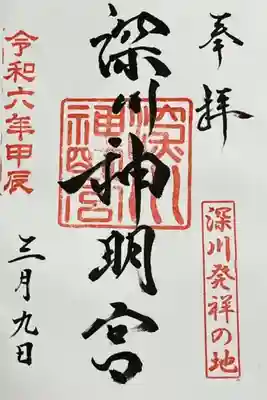 奉拝
深川発祥の地
深川神明宮
深川神明宮
令和六年甲辰
三月九日